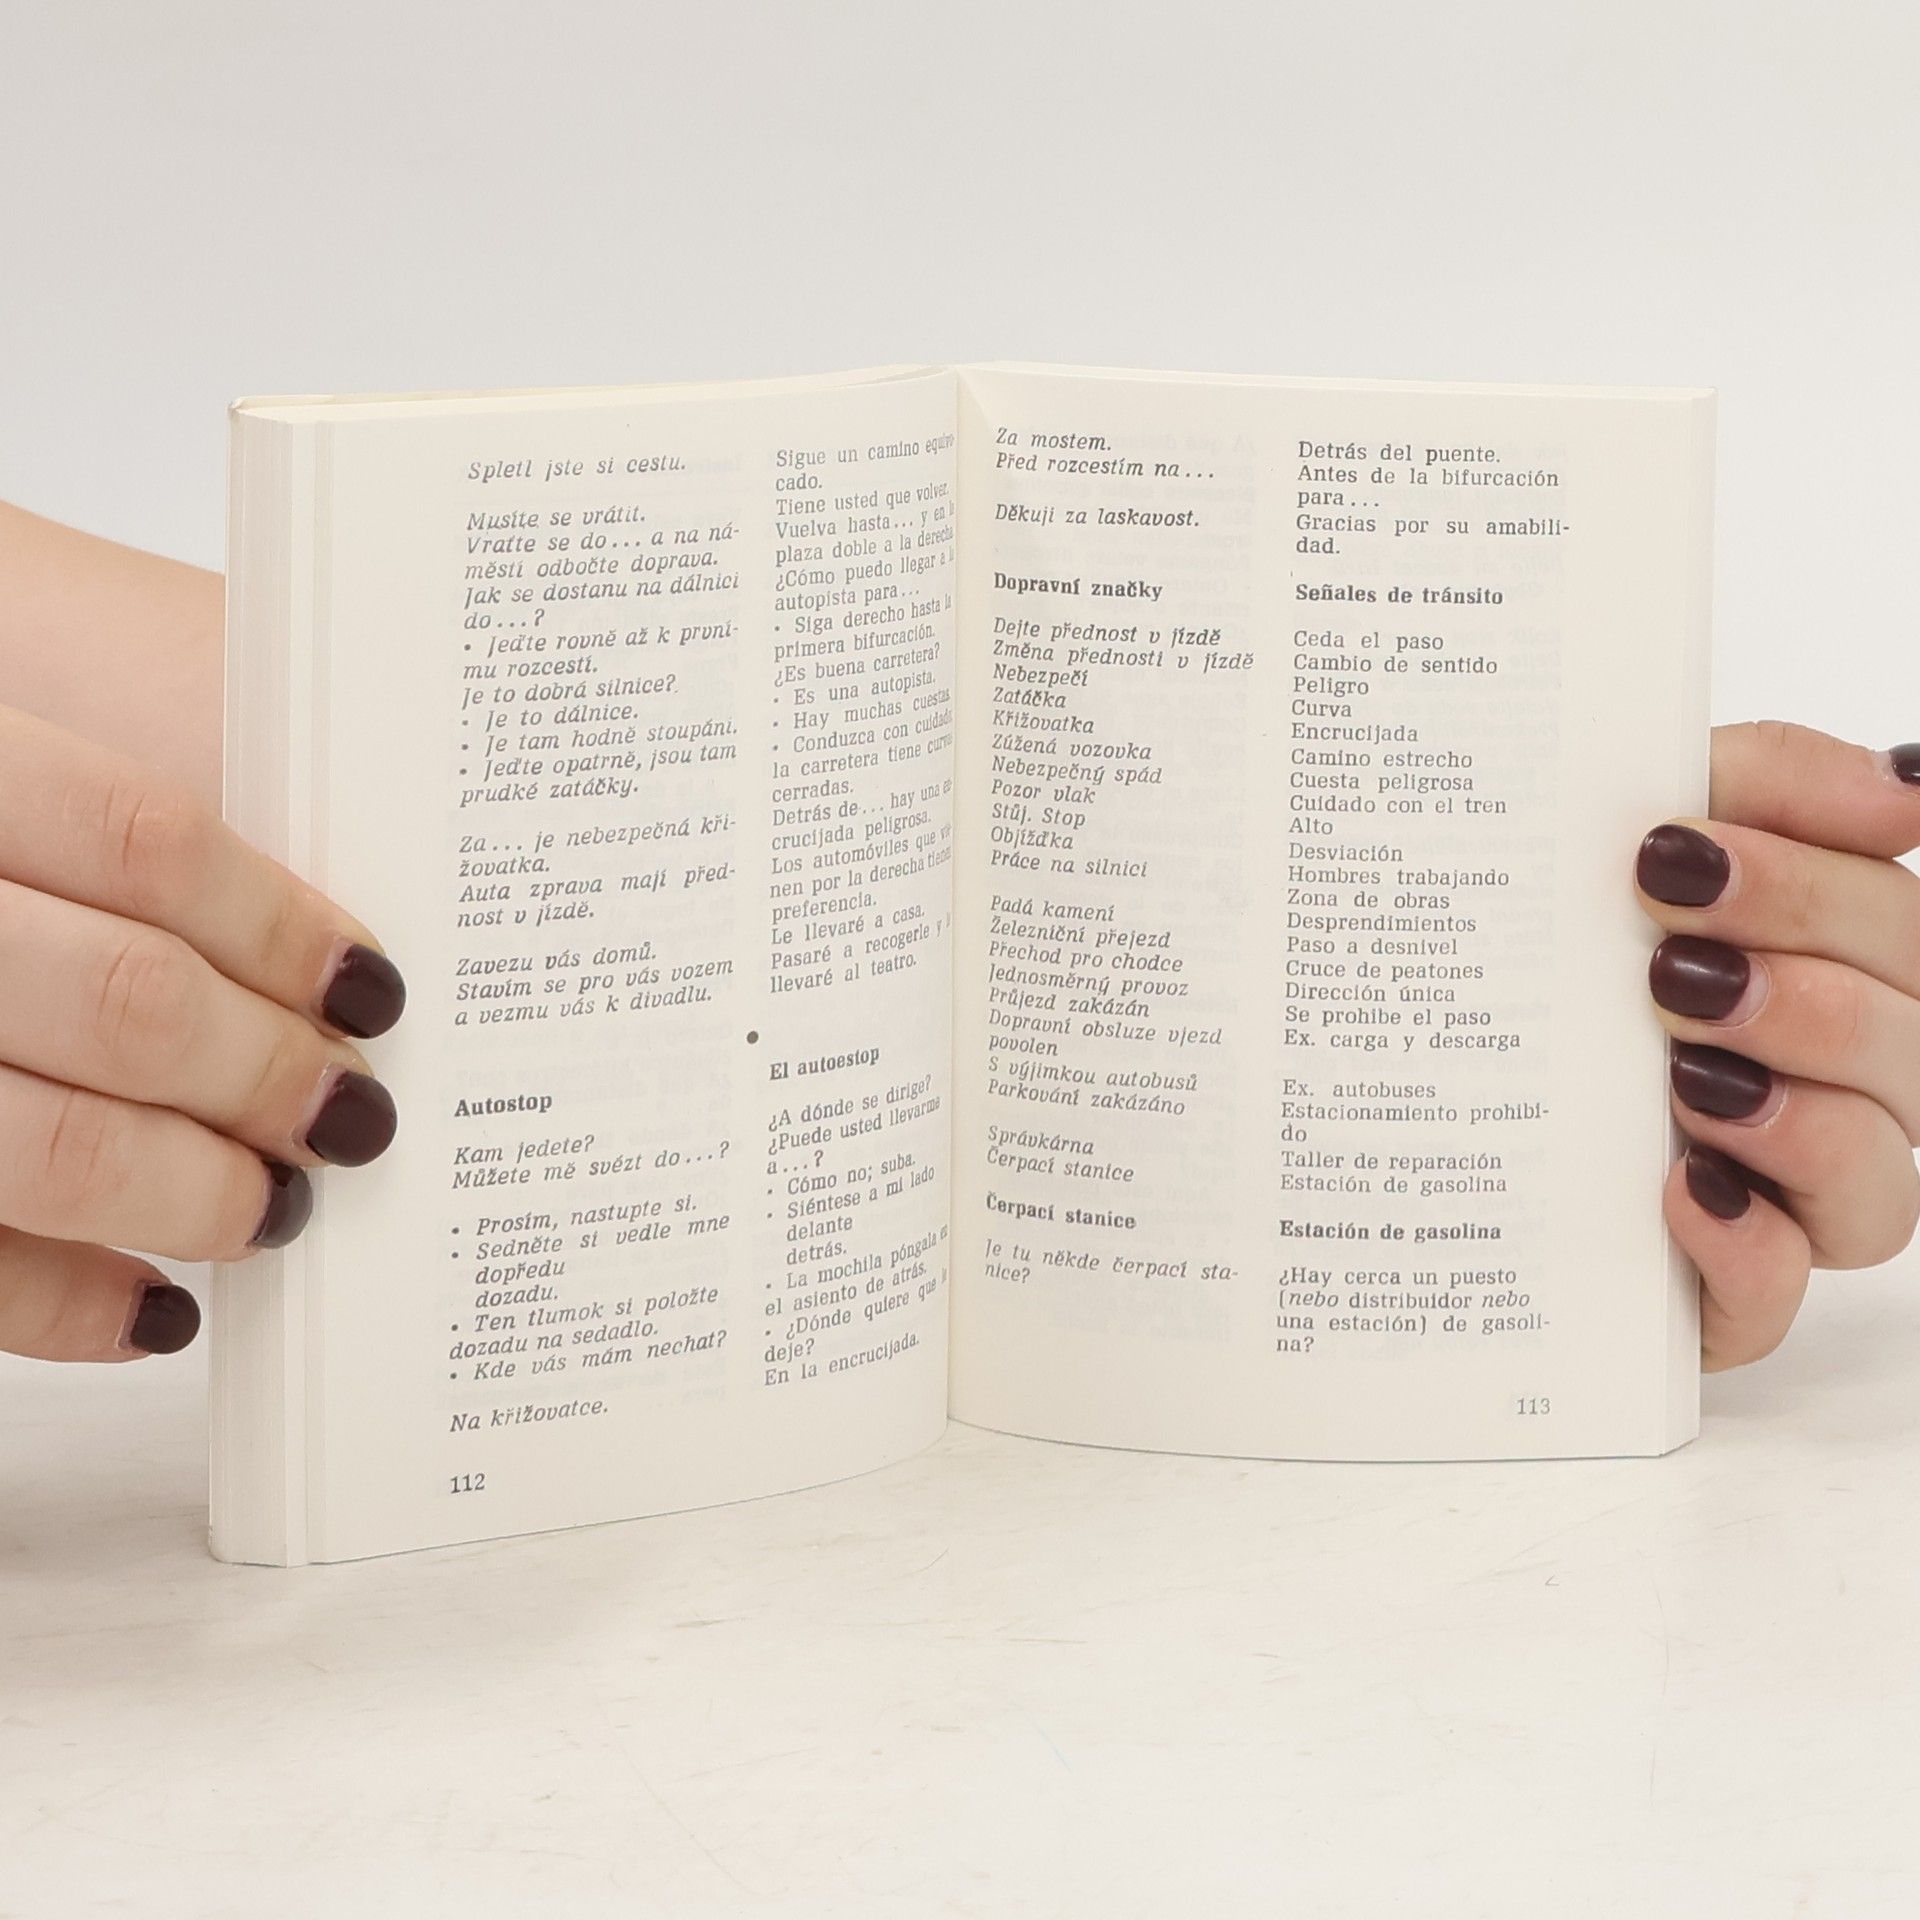 Spletl jste si cestu.
Musíte se vrátit.
Vraťte se do... a na ná-
městí odbočte doprava.
Jak se dostanu na dálnici
do...?
• Jeďte rovně až k první-
mu rozcestí.
Je to dobrá silnice?
• Je to dálnice.
• Je tam hodně stoupání.
• Jeďte opatrně, jsou tam
prudké zatáčky.
Za... je nebezpečná kři-
žovatka.
Auta zprava mají před-
nost v jízdě.
Zavezu vás domů.
Stavím se pro vás vozem
a vezmu vás k divadlu.
Autostop
Kam jedete?
Můžete mě svézt do...?
• Prosím, nastupte si.
• Sedněte si vedle mne
dopředu
dozadu.
• Ten tlumok si položte
dozadu na sedadlo.
• Kde vás mám nechat?
Na křižovatce.
112
Sigue un camino equivo-
cado.
Tiene usted que volver.
Vuelva hasta... y en la
plaza doble a la derecha
¿Cómo puedo llegar a la
autopista para...
• Siga derecho hasta la
primera bifurcación.
¿Es buena carretera?
• Es una autopista.
• Hay muchas cuestas.
• Conduzca con cuidado,
la carretera tiene curvas
cerradas.
Detrás de... hay una en-
crucijada peligrosa.
Los automóviles que vie-
nen por la derecha tienen
preferencia.
Le llevaré a casa.
Pasaré a recogerle y
llevaré al teatro.
El autoestop
¿A dónde se dirige?
¿Puede usted llevarme
a...?
• Cómo no; suba.
• Siéntese a mi lado
delante
detrás.
• La mochila póngala en
el asiento de atrás.
• ¿Dónde quiere que le
deje?
En la encrucijada.
Za mostem.
Před rozcestím na...
Děkuji za laskavost.
Dopravní značky
Dejte přednost v jízdě
Změna přednosti v jízdě
Nebezpečí
Zatáčka
Křižovatka
Zúžená vozovka
Nebezpečný spád
Pozor vlak
Stůj. Stop
Objížďka
Práce na silnici
Padá kamení
Železniční přejezd
Přechod pro chodce
Jednosměrný provoz
Průjezd zakázán
Dopravní obsluze vjezd
povolen
S výjimkou autobusů
Parkování zakázáno
Správkárna
Čerpací stanice
Čerpací stanice
Je tu někde čerpací sta-
nice?
Detrás del puente.
Antes de la bifurcación
para...
Gracias por su amabili-
dad.
Señales de tránsito
Ceda el paso
Cambio de sentido
Peligro
Curva
Encrucijada
Camino estrecho
Cuesta peligrosa
Cuidado con el tren
Alto
Desviación
Hombres trabajando
Zona de obras
Desprendimientos
Paso a desnivel
Cruce de peatones
Dirección única
Se prohibe el paso
Ex. carga y descarga
Ex. autobuses
Estacionamiento prohibi-
do
Taller de reparación
Estación de gasolina
Estación de gasolina
¿Hay cerca un puesto
(nebo distribuidor nebo
una estación) de gasoli-
na?
113